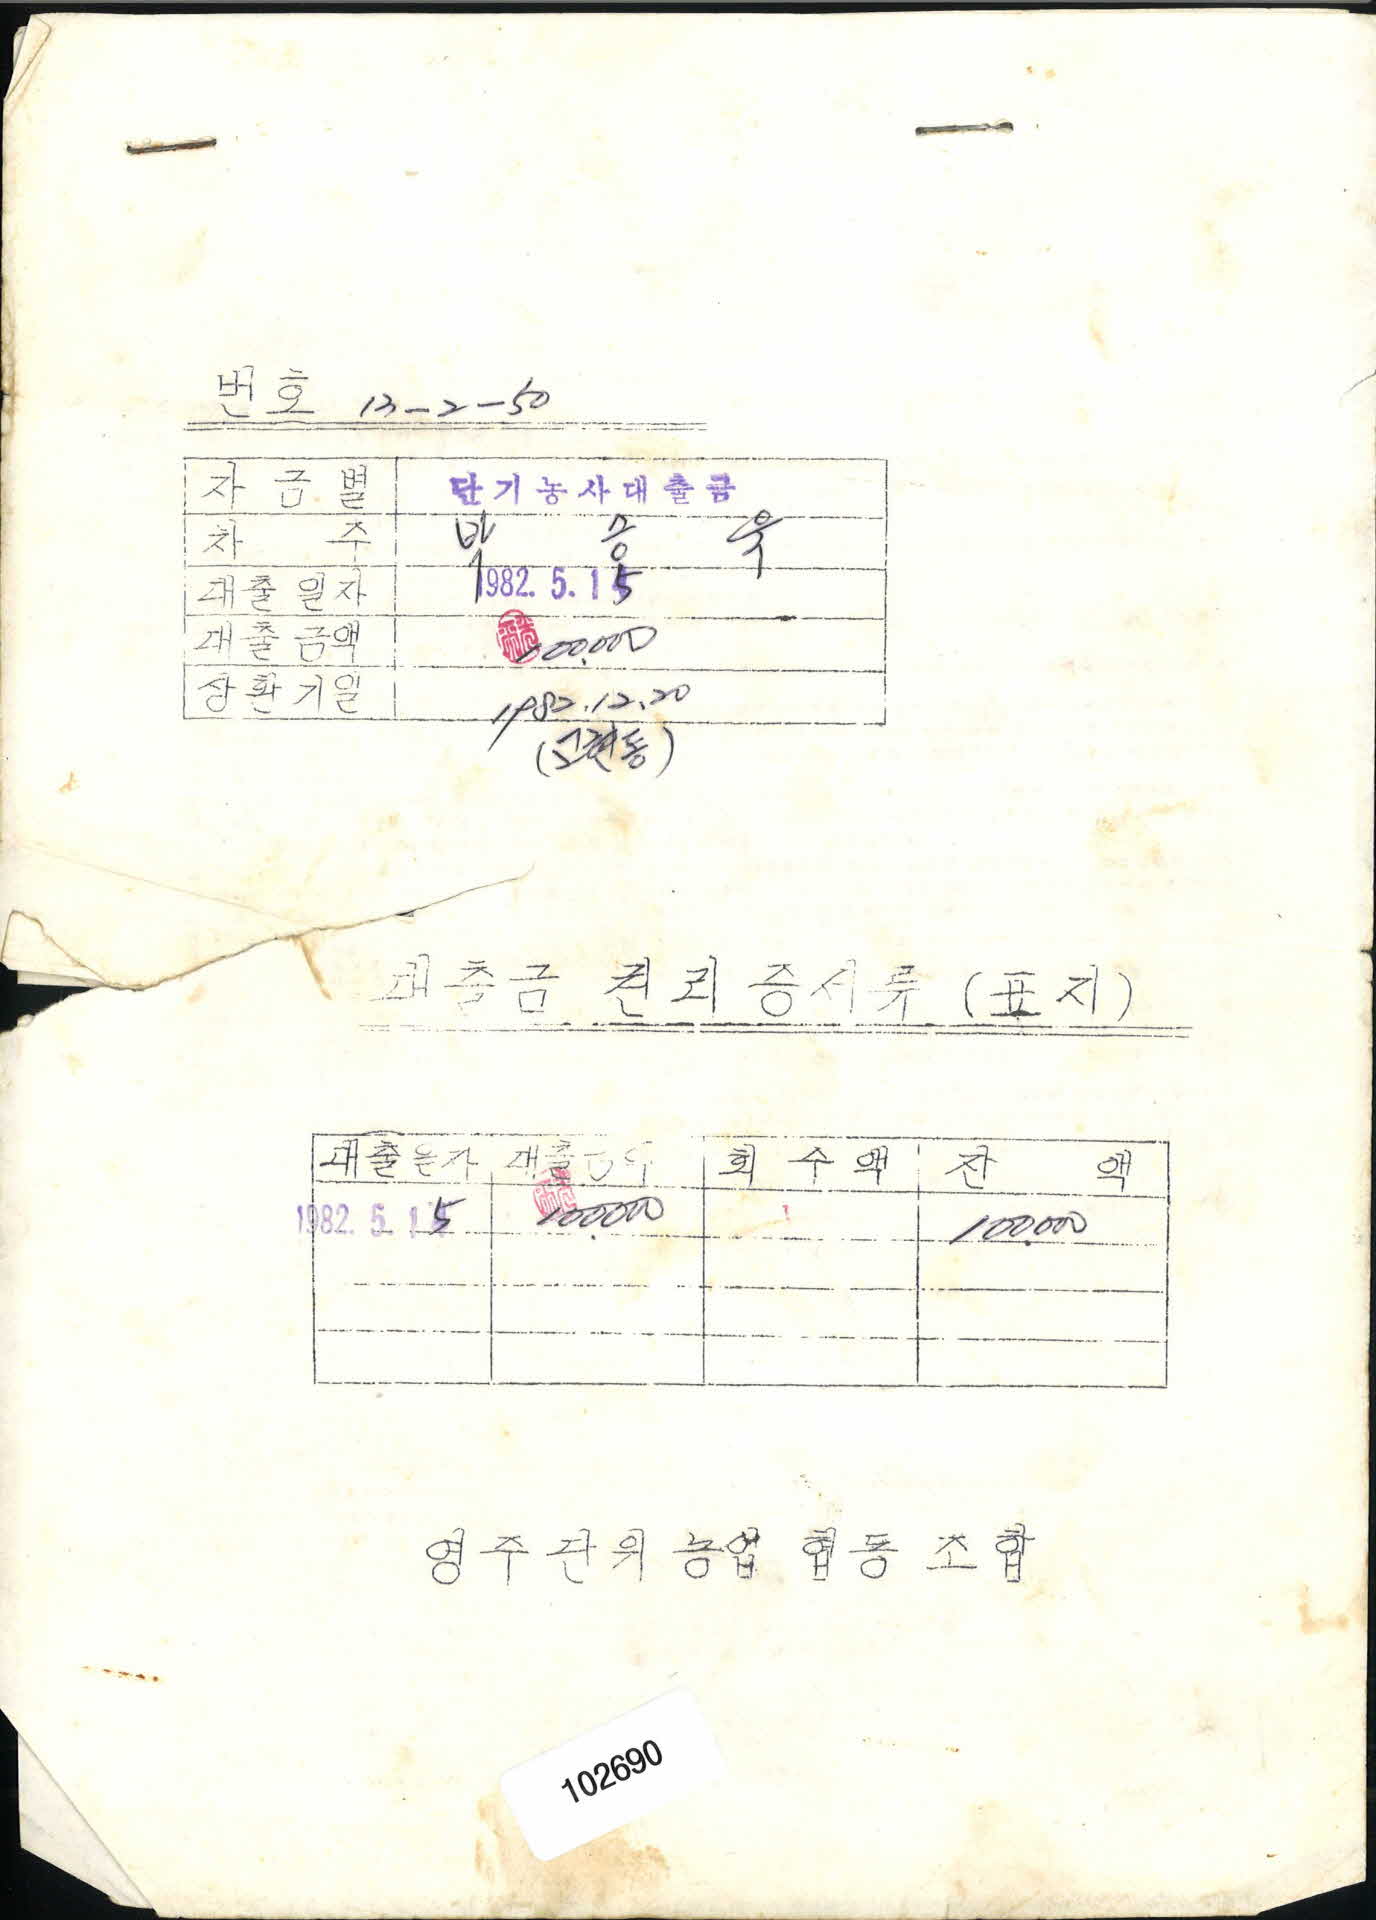 번호 13-2-50
자금별 단기농사대출금
차주 박승욱
대출일자 1982. 5. 15
대출금액 100,000
상환기일 1982. 12. 20
(고현동)
대출금 권리증서류 (표지)
대출일자 대출금액 회수액 잔액
1982. 5. 15 100,000 100,000
영주단위농업협동조합
102690